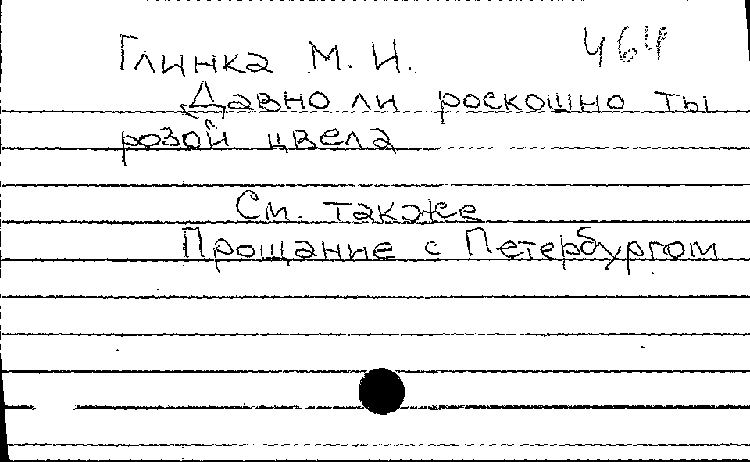 Глинка М. И. 464
Давно ли роскошно ты
розой цвела
См. также
Прощание с Петербургом